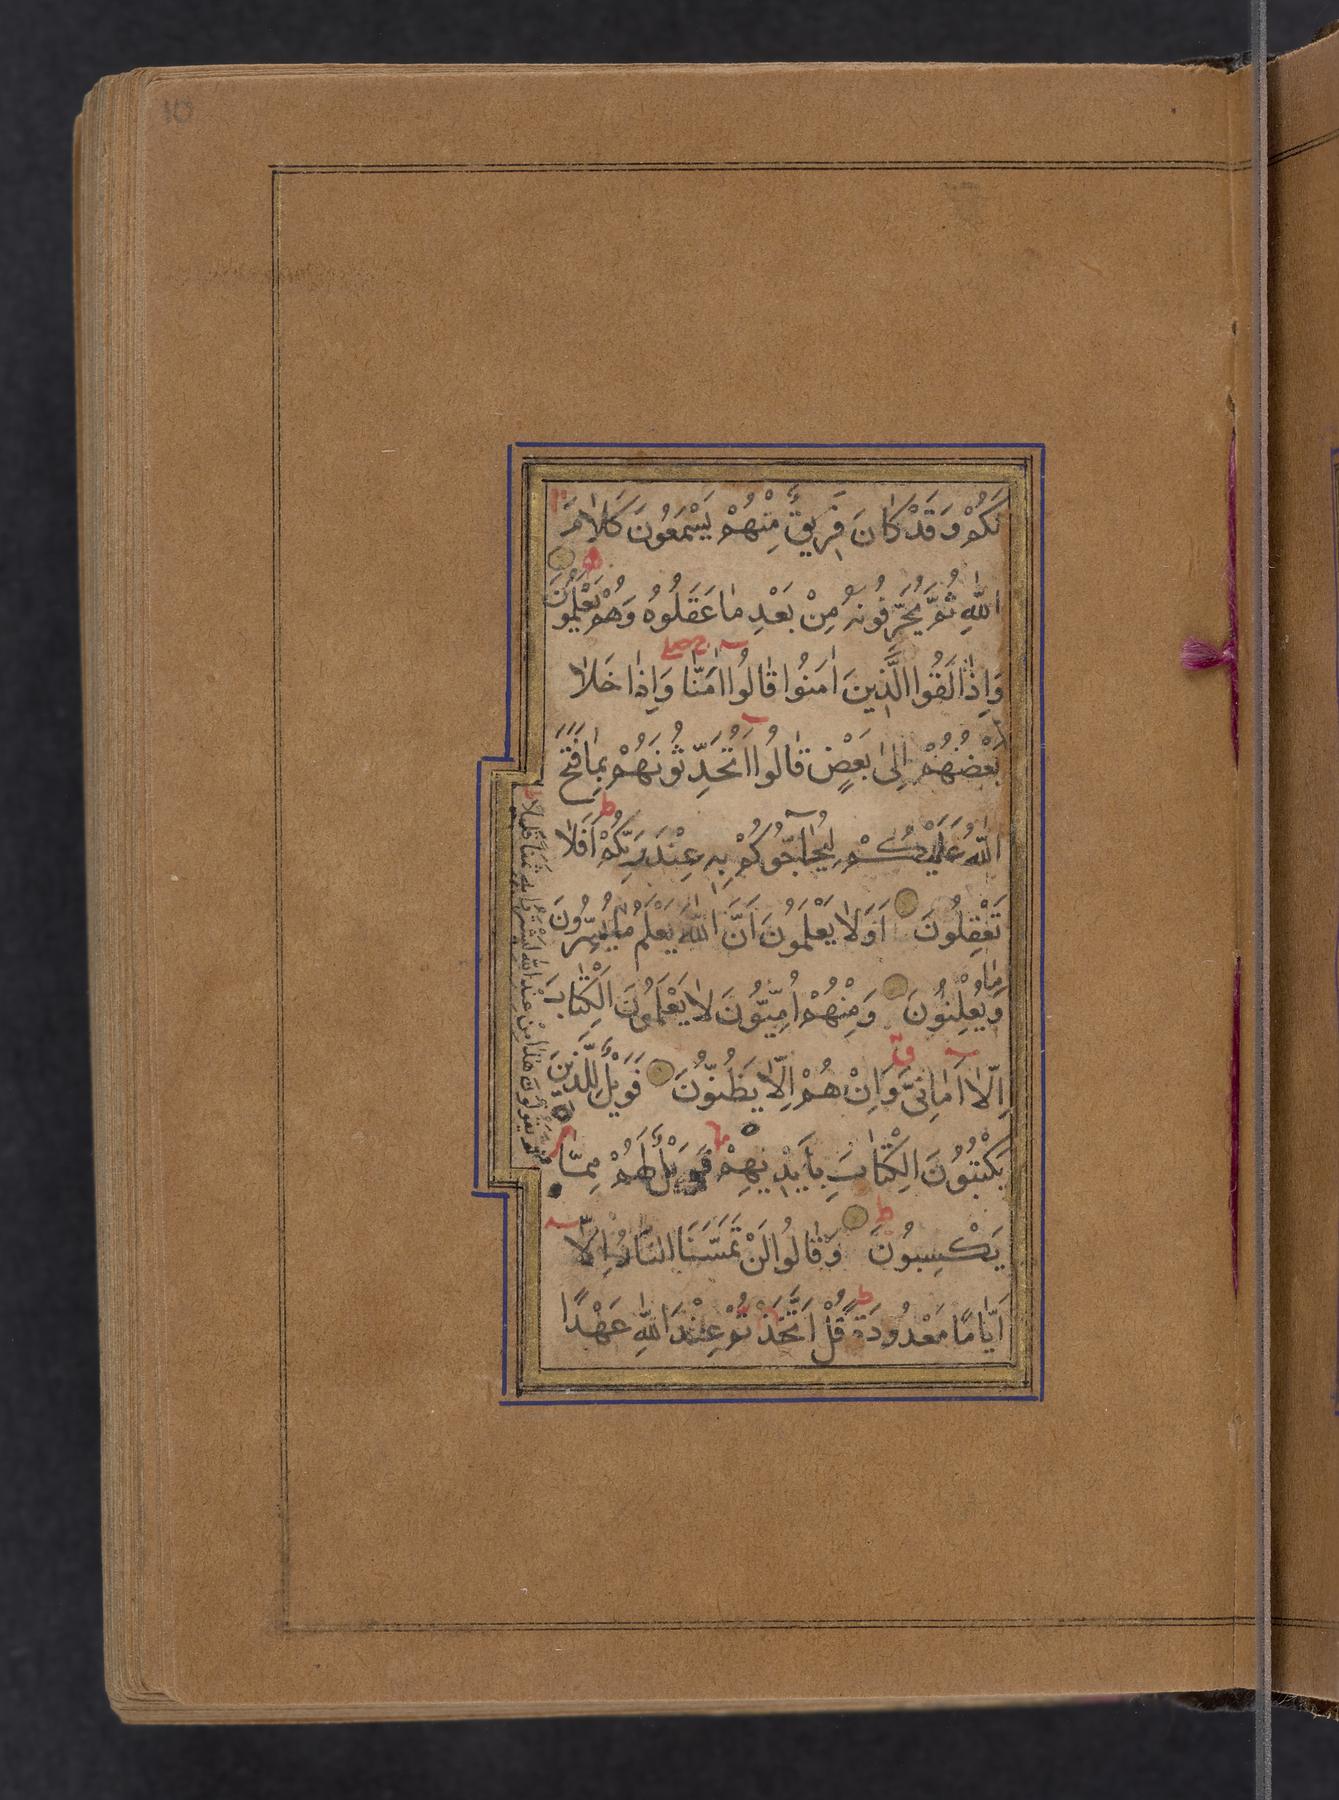 لَكُمْ وَقَدْ كَانَ فَرِيقٌ مِنْهُمْ يَسْمَعُونَ كَلَامَ
اللّٰهِ ثُمَّ يُحَرِّفُونَهُ مِنْ بَعْدِ مَا عَقَلُوهُ وَهُمْ يَعْلَمُونَ
وَإِذَا لَقُوا الَّذِينَ اٰمَنُوا قَالُوا اٰمَنَّا وَإِذَا خَلَا
بَعْضُهُمْ اِلٰى بَعْضٍ قَالُوا اَتُحَدِّثُونَهُمْ بِمَا فَتَحَ
اللّٰهُ عَلَيْكُمْ لِيُحَاجُّوكُمْ بِهِ عِنْدَ رَبِّكُمْ اَفَلَا
تَعْقِلُونَ اَوَلَا يَعْلَمُونَ اَنَّ اللّٰهَ يَعْلَمُ مَا يُسِرُّونَ
وَمَا يُعْلِنُونَ وَمِنْهُمْ اُمِّيُّونَ لَا يَعْلَمُونَ الْكِتَابَ
اِلَّا اَمَانِيَّ وَاِنْ هُمْ اِلَّا يَظُنُّونَ فَوَيْلٌ لِلَّذِينَ
يَكْتُبُونَ الْكِتَابَ بِاَيْدِيهِمْ فَوَيْلٌ لَهُمْ مِمَّا
يَكْسِبُونَ وَقَالُوا لَنْ تَمَسَّنَا النَّارُ اِلَّا
اَيَّامًا مَعْدُودَةً قُلْ اَتَّخَذْتُمْ عِنْدَ اللّٰهِ عَهْدًا
ثُمَّ يَقُولُونَ هٰذَا مِنْ عِنْدِ اللّٰهِ لِيَشْتَرُوا بِهِ ثَمَنًا قَلِيلًا
10